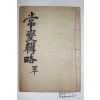 常變輯略 單